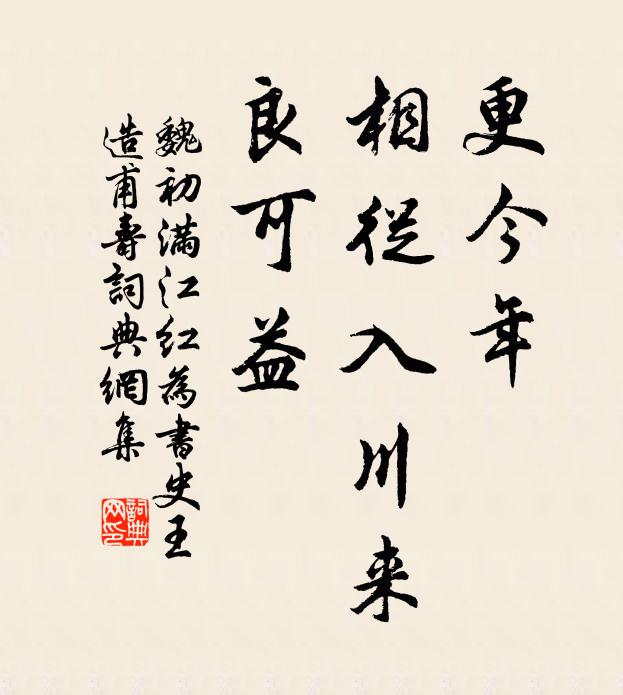 更今年
相從入川来
良可益
魏初满江红為書史王
造甫壽詞典網集
詞典网印